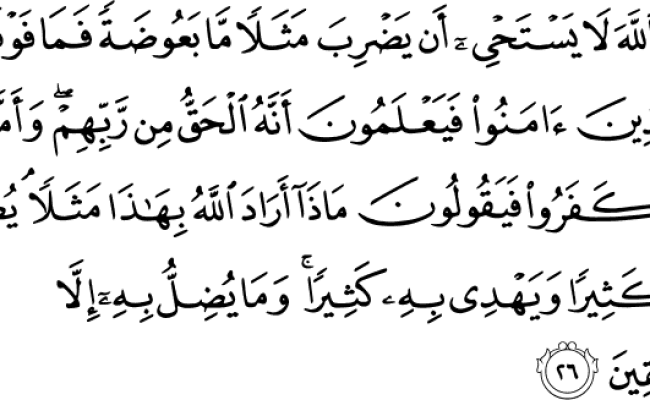 ٱللَّهَ لَا يَسْتَحْىِۦٓ أَن يَضْرِبَ مَثَلًا مَّا بَعُوضَةً فَمَا
ءَامَنُوا۟ فَيَعْلَمُونَ أَنَّهُ ٱلْحَقُّ مِن رَّبِّهِمْ ۖ
كَفَرُوا۟ فَيَقُولُونَ مَاذَآ أَرَادَ ٱللَّهُ بِهَـٰذَا مَثَلًا ۘ
كَثِيرًا وَيَهْدِى بِهِۦ كَثِيرًا ۚ وَمَا يُضِلُّ بِهِۦٓ إِلَّا
٢٦